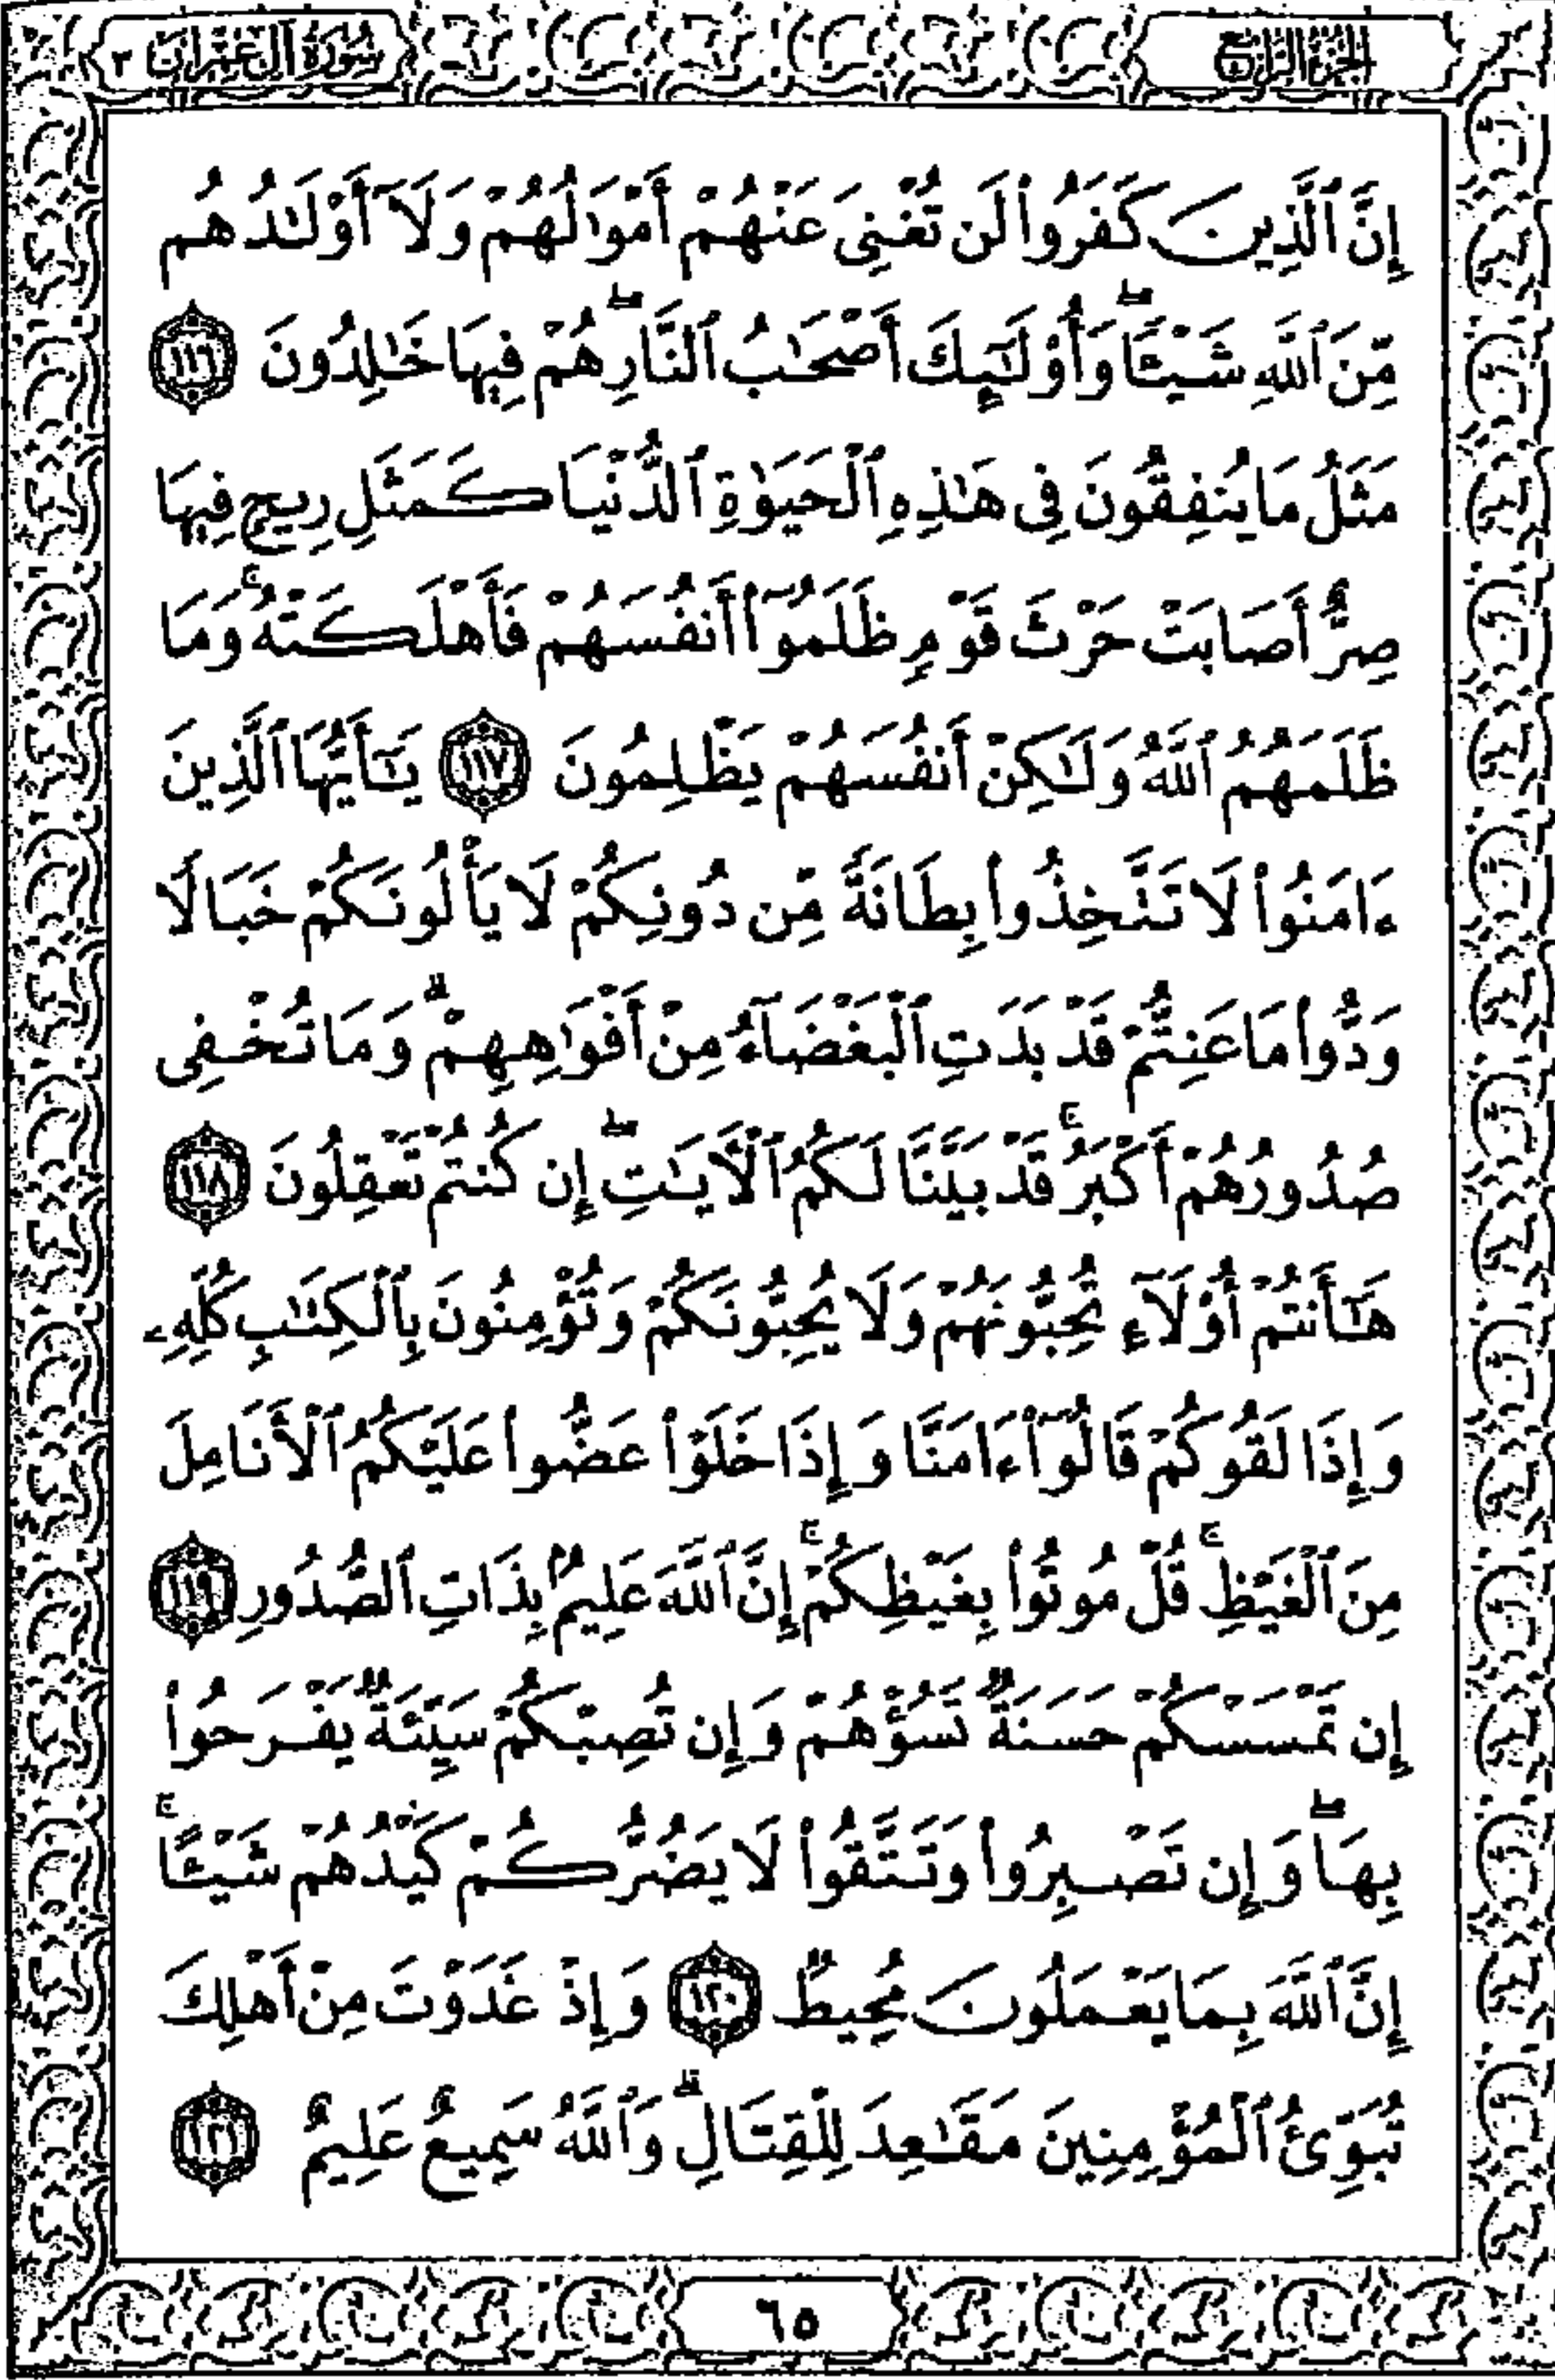 الجزء الرابع
سورة آل عمران ٣
إِنَّ ٱلَّذِينَ كَفَرُوا۟ لَن تُغْنِىَ عَنْهُمْ أَمْوَٰلُهُمْ وَلَآ أَوْلَٰدُهُم
مِّنَ ٱللَّهِ شَيْـًٔا ۖ وَأُو۟لَٰٓئِكَ أَصْحَٰبُ ٱلنَّارِ ۖ هُمْ فِيهَا خَٰلِدُونَ ١١٦
مَثَلُ مَا يُنفِقُونَ فِى هَٰذِهِ ٱلْحَيَوٰةِ ٱلدُّنْيَا كَمَثَلِ رِيحٍ فِيهَا
صِرٌّ أَصَابَتْ حَرْثَ قَوْمٍ ظَلَمُوٓا۟ أَنفُسَهُمْ فَأَهْلَكَتْهُ ۚ وَمَا
ظَلَمَهُمُ ٱللَّهُ وَلَٰكِنْ أَنفُسَهُمْ يَظْلِمُونَ ١١٧ يَٰٓأَيُّهَا ٱلَّذِينَ
ءَامَنُوا۟ لَا تَتَّخِذُوا۟ بِطَانَةً مِّن دُونِكُمْ لَا يَأْلُونَكُمْ خَبَالًا
وَدُّوا۟ مَا عَنِتُّمْ قَدْ بَدَتِ ٱلْبَغْضَآءُ مِنْ أَفْوَٰهِهِمْ ۗ وَمَا تُخْفِى
صُدُورُهُمْ أَكْبَرُ ۚ قَدْ بَيَّنَّا لَكُمُ ٱلْءَايَٰتِ ۖ إِن كُنتُمْ تَعْقِلُونَ ١١٨
هَٰٓأَنتُمْ أُو۟لَآءِ تُحِبُّونَهُمْ وَلَا يُحِبُّونَكُمْ وَتُؤْمِنُونَ بِٱلْكِتَٰبِ كُلِّهِۦ
وَإِذَا لَقُوكُمْ قَالُوٓا۟ ءَامَنَّا وَإِذَا خَلَوْا۟ عَضُّوا۟ عَلَيْكُمُ ٱلْأَنَامِلَ
مِنَ ٱلْغَيْظِ ۚ قُلْ مُوتُوا۟ بِغَيْظِكُمْ ۚ إِنَّ ٱللَّهَ عَلِيمٌۢ بِذَاتِ ٱلصُّدُورِ ١١٩
إِن تَمْسَسْكُمْ حَسَنَةٌ تَسُؤْهُمْ وَإِن تُصِبْكُمْ سَيِّئَةٌ يَفْرَحُوا۟
بِهَا ۖ وَإِن تَصْبِرُوا۟ وَتَتَّقُوا۟ لَا يَضُرُّكُمْ كَيْدُهُمْ شَيْـًٔا ۗ
إِنَّ ٱللَّهَ بِمَا يَعْمَلُونَ مُحِيطٌ ١٢٠ وَإِذْ غَدَوْتَ مِنْ أَهْلِكَ
تُبَوِّئُ ٱلْمُؤْمِنِينَ مَقَٰعِدَ لِلْقِتَالِ ۗ وَٱللَّهُ سَمِيعٌ عَلِيمٌ ١٢١
٦٥